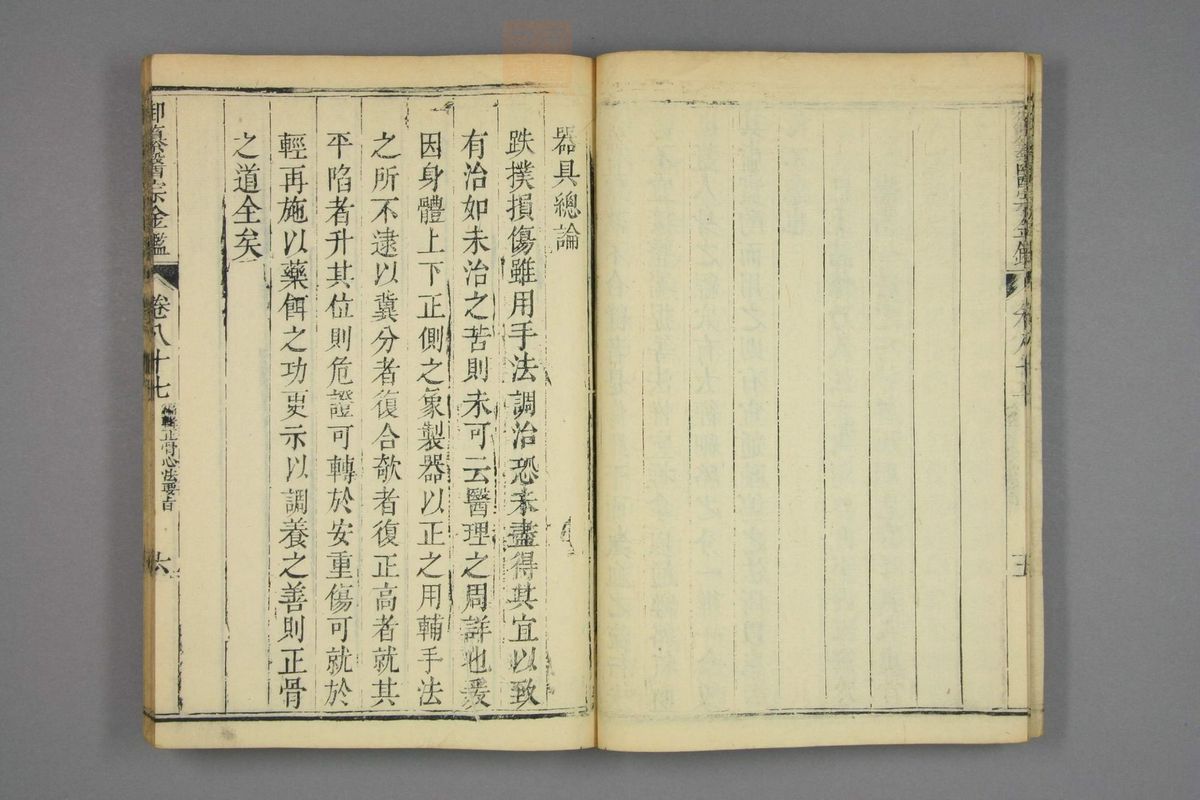 器具總論
跌撲損傷雖用手法調治恐未盡得其宜以致
有治如未治之苦則未可云醫理之周詳也爰
因身體上下正側之象製器以正之用輔手法
之所不逮以冀分者復合欹者復正高者就其
平陷者升其位則危證可轉於安重傷可就於
輕再施以藥餌之功更示以調養之善則正骨
之道全矣
御纂醫宗金鑑 卷八十七 編輯正骨心法要旨 六